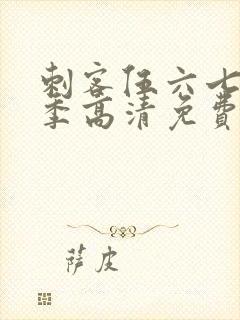 刺客伍六七
季高清免费
萨皮